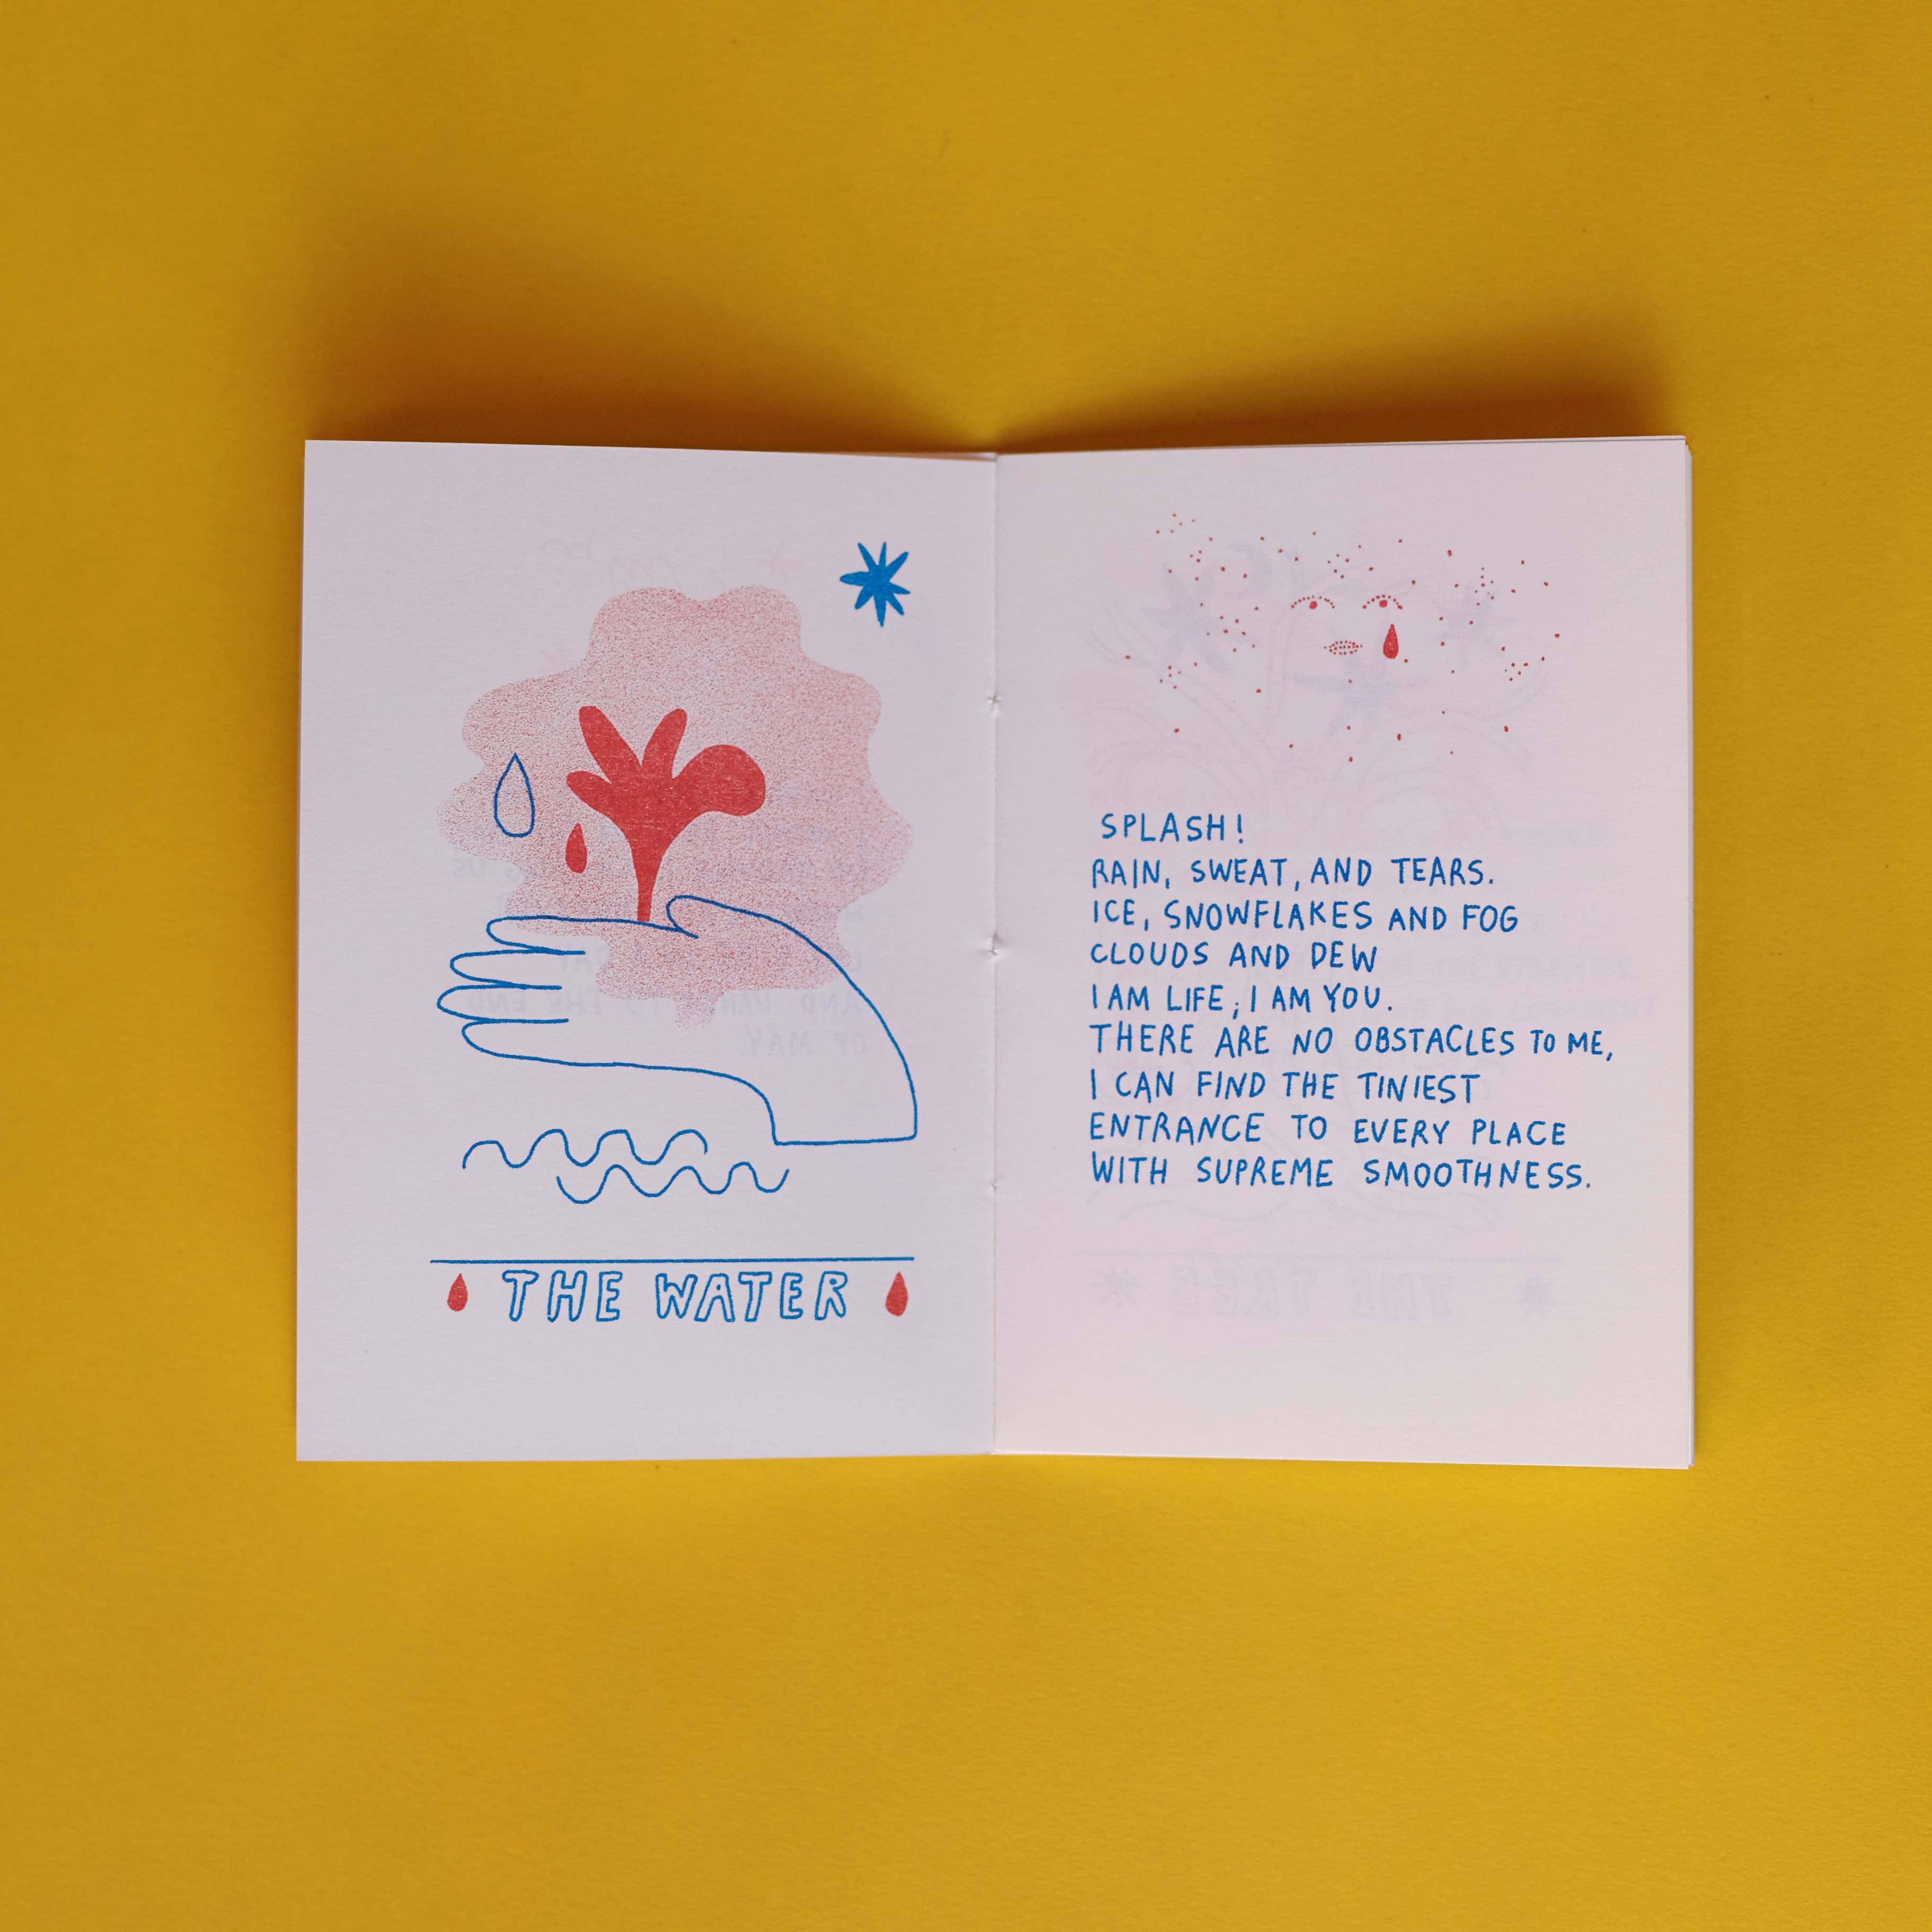 THE WATER
SPLASH!
RAIN, SWEAT, AND TEARS.
ICE, SNOWFLAKES AND FOG
CLOUDS AND DEW
I AM LIFE; I AM YOU.
THERE ARE NO OBSTACLES TO ME,
I CAN FIND THE TINIEST
ENTRANCE TO EVERY PLACE
WITH SUPREME SMOOTHNESS.